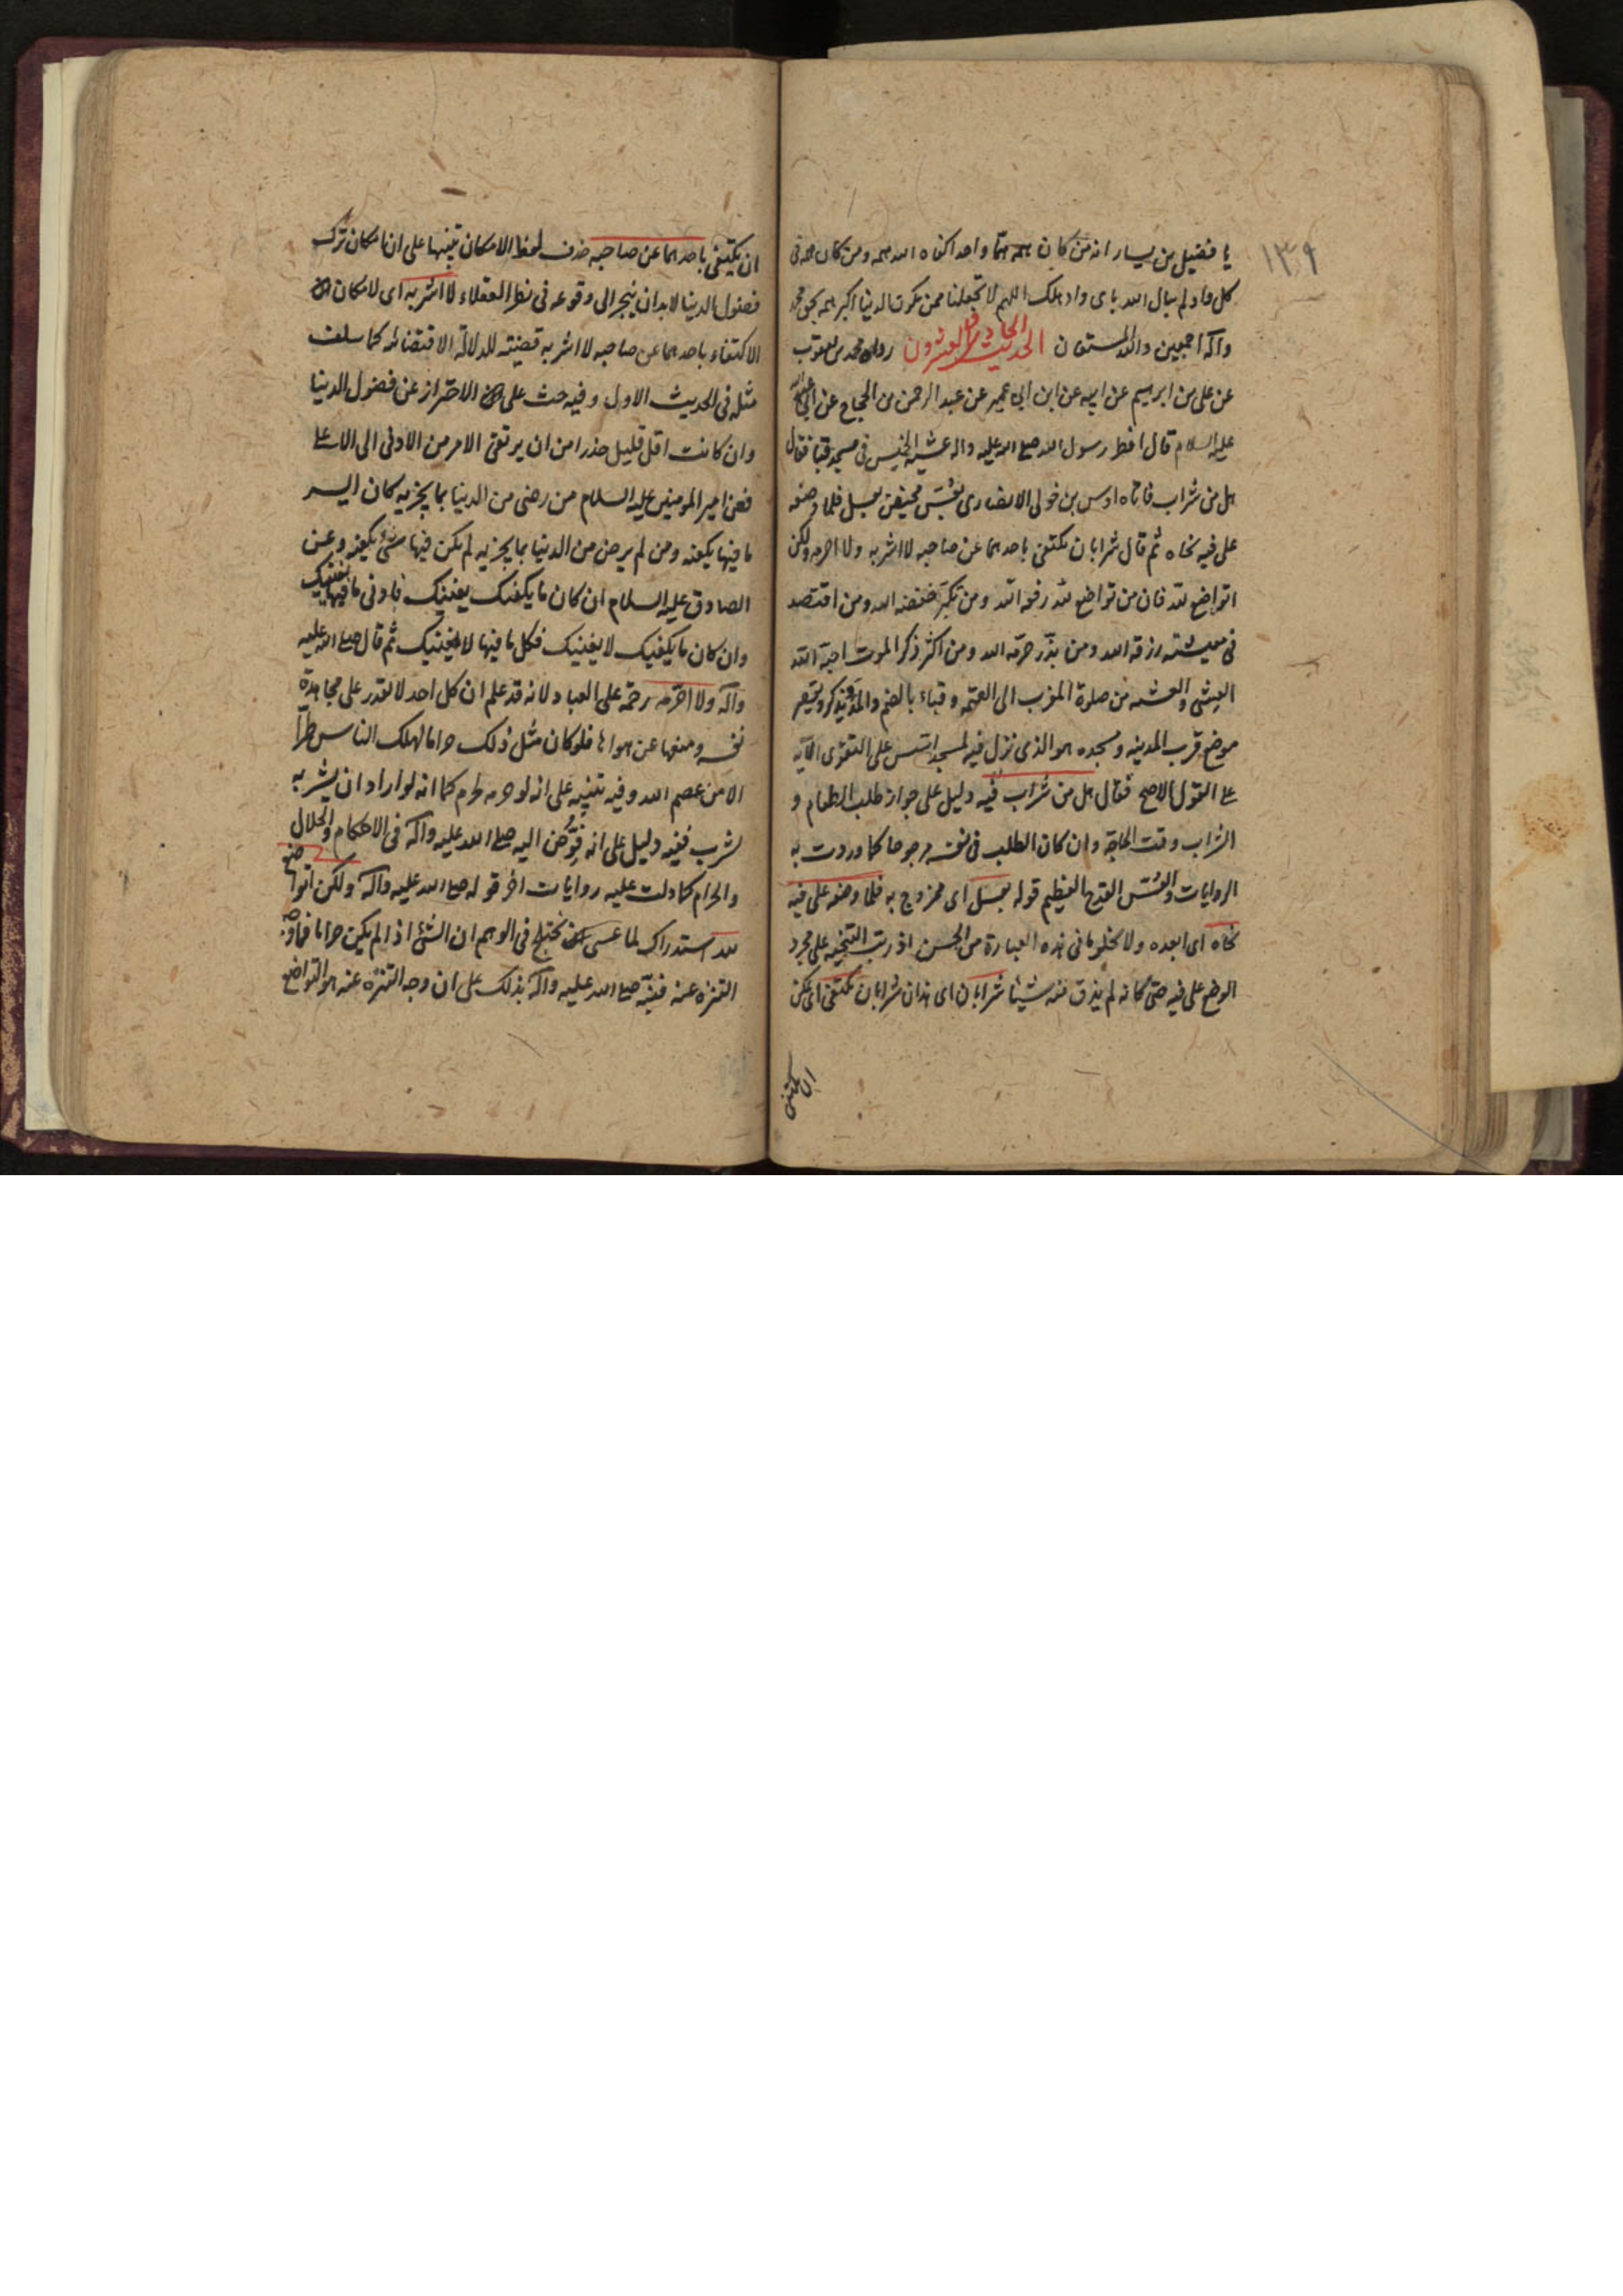 ١٣٩
يا فضيل بن يسار انه من كان همه همّا واحدا كفاه الله همه ومن كان همه فى
كل واد لم يبال الله باى واد هلك اللهم لا تجعلنا ممن يكون الدنيا اكبر همه بحق محمد
وآله اجمعين والله المستعان الحديث الحادى والعشرون روى محمد بن يعقوب
عن على بن ابرهيم عن ابيه عن ابن ابى عمير عن عبد الرحمن بن الحجاج عن ابى عبد الله
عليه السلام قال افطر رسول الله صلى الله عليه واله عشية الخميس فى مسجد قبا فقال
هل من شراب فاتاه اوس بن خولى الانصارى بعُسّ مخيض بعسل فلما وضعه
على فيه نحاه ثم قال شرابان يكتفى باحدهما عن صاحبه لا اشربه ولا احرمه ولكن
اتواضع لله فان من تواضع لله رفعه الله ومن تكبّر خفضه الله ومن اقتصد
فى معيشته رزقه الله ومن بذّر حرّمه الله ومن اكثر ذكر الموت احبّه الله
العشى والعشيه من صلوة المغرب الى العتمه وقباء بالضم والمد ويذكر ويقصر
موضع قرب المدينه ومسجده هو الذى نزل فيه لمسجد اسّس على التقوى الآيه
على القول الاصح فقال هل من شراب فيه دليل على جواز طلب الطعام و
الشراب وقت الحاجة وان كان الطلب فى نفسه مرجوحا كما وردت به
الروايات والعُسّ القدح العظيم قوله بعسل اى ممزوج به فلما وضعه على فيه
نحاه اى ابعده ولا يخلو ما فى هذه العبارة من الحسن اذ رتب التنحيه على مجرد
الوضع على فيه حتى كانه لم يذق منه شيئا شرابان اى هذان شرابان يكتفى اى يمكن
ان يكتفى
ان يكتفى باحدهما عن صاحبه حذف لفظ الامكان تنبيها على ان امكان ترك
فضول الدنيا لابد ان ينجر الى وقوعه فى نظر العقلاء لا اشربه اى لامكان
الاكتفاء باحدهما عن صاحبه لا اشربه قضيته للدلالة الاقتضائه كما سلفت
مثله فى الحديث الاول وفيه حث على الاحتراز عن فضول الدنيا
وان كانت اقل قليل حذرا من ان يرتقى الامر من الادنى الى الاعلى
فعن امير المومنين عليه السلام من رضى من الدنيا بما يجزيه كان ايسر
ما فيها يكفه ومن لم يرض من الدنيا بما يجزيه لم يكن فيها شئ يكفيه وعن
الصادق عليه السلام ان كان ما يكفيك يغنيك فادنى ما فيها يغنيك
وان كان ما يكفيك لا يغنيك فكل ما فيها لا يغنيك ثم قال صلى الله عليه
وآله ولا احرّمه رحمة على العباد لانه قد علم ان كل احد لا يقدر على مجاهدة
نفسه ومنعها عن هواها فلو كان مثل ذلك حراما لهلك الناس طرّا
الا من عصم الله وفيه تنبيه على انه لو حرمه لحرم كما انه لو اراد ان يشربه
لشرب ففيه دليل على انه فُوّض اليه صلى الله عليه وآله فى الاحكام والحلال
والحرام كما دلت عليه روايات اخر قوله صلى الله عليه وآله ولكن اتواضع
لله استدراك لما عسى يختلج فى الوهم ان الشئ اذا لم يكن حراما فما وجه
التنزه عنه فنبّه صلى الله عليه وآله بذلك على ان وجه التنزه عنه هو التواضع